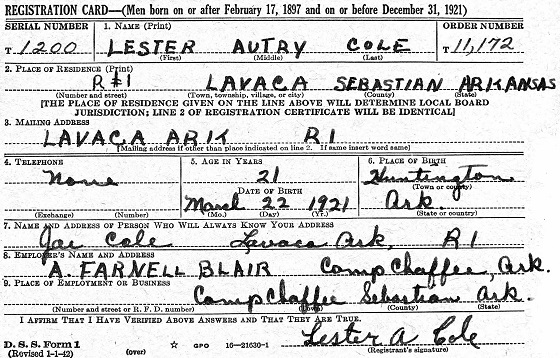 REGISTRATION CARD—(Men born on or after February 17, 1897 and on or before December 31, 1921)
SERIAL NUMBER 1. NAME (Print) ORDER NUMBER
T 1200 LESTER AUTRY COLE T 11,172
(First) (Middle) (Last)
2. PLACE OF RESIDENCE (Print)
R#1 LAVACA SEBASTIAN ARKANSAS
(Number and street) (Town, township, village, or city) (County) (State)
[THE PLACE OF RESIDENCE GIVEN ON THE LINE ABOVE WILL DETERMINE LOCAL BOARD
JURISDICTION; LINE 2 OF REGISTRATION CERTIFICATE WILL BE IDENTICAL]
3. MAILING ADDRESS
LAVACA ARK R1
[Mailing address if other than place indicated on line 2. If same insert word same]
4. TELEPHONE 5. AGE IN YEARS 6. PLACE OF BIRTH
None 21 Huntington
(Town or county)
DATE OF BIRTH
March 22 1921 Ark.
(Exchange) (Number) (Mo.) (Day) (Yr.) (State or country)
7. NAME AND ADDRESS OF PERSON WHO WILL ALWAYS KNOW YOUR ADDRESS
Cole Lavaca Ark, R1
8. EMPLOYER'S NAME AND ADDRESS
A. FARNELL BLAIR Camp Chaffee, Ark.
9. PLACE OF EMPLOYMENT OR BUSINESS
Camp Chaffee Sebastian Ark.
(Number and street or R. F. D. number) (Town) (County) (State)
I AFFIRM THAT I HAVE VERIFIED ABOVE ANSWERS AND THAT THEY ARE TRUE.
Lester A Cole
D. S. S. Form 1 (Revised 1-1-42) (over) ☆ GPO 16—21630-1 (Registrant's signature)